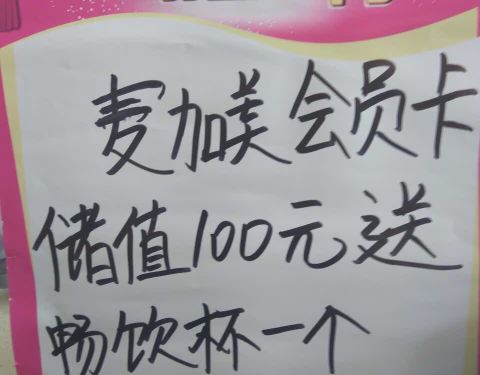 麦加美会员卡
储值100元送
畅饮杯一个